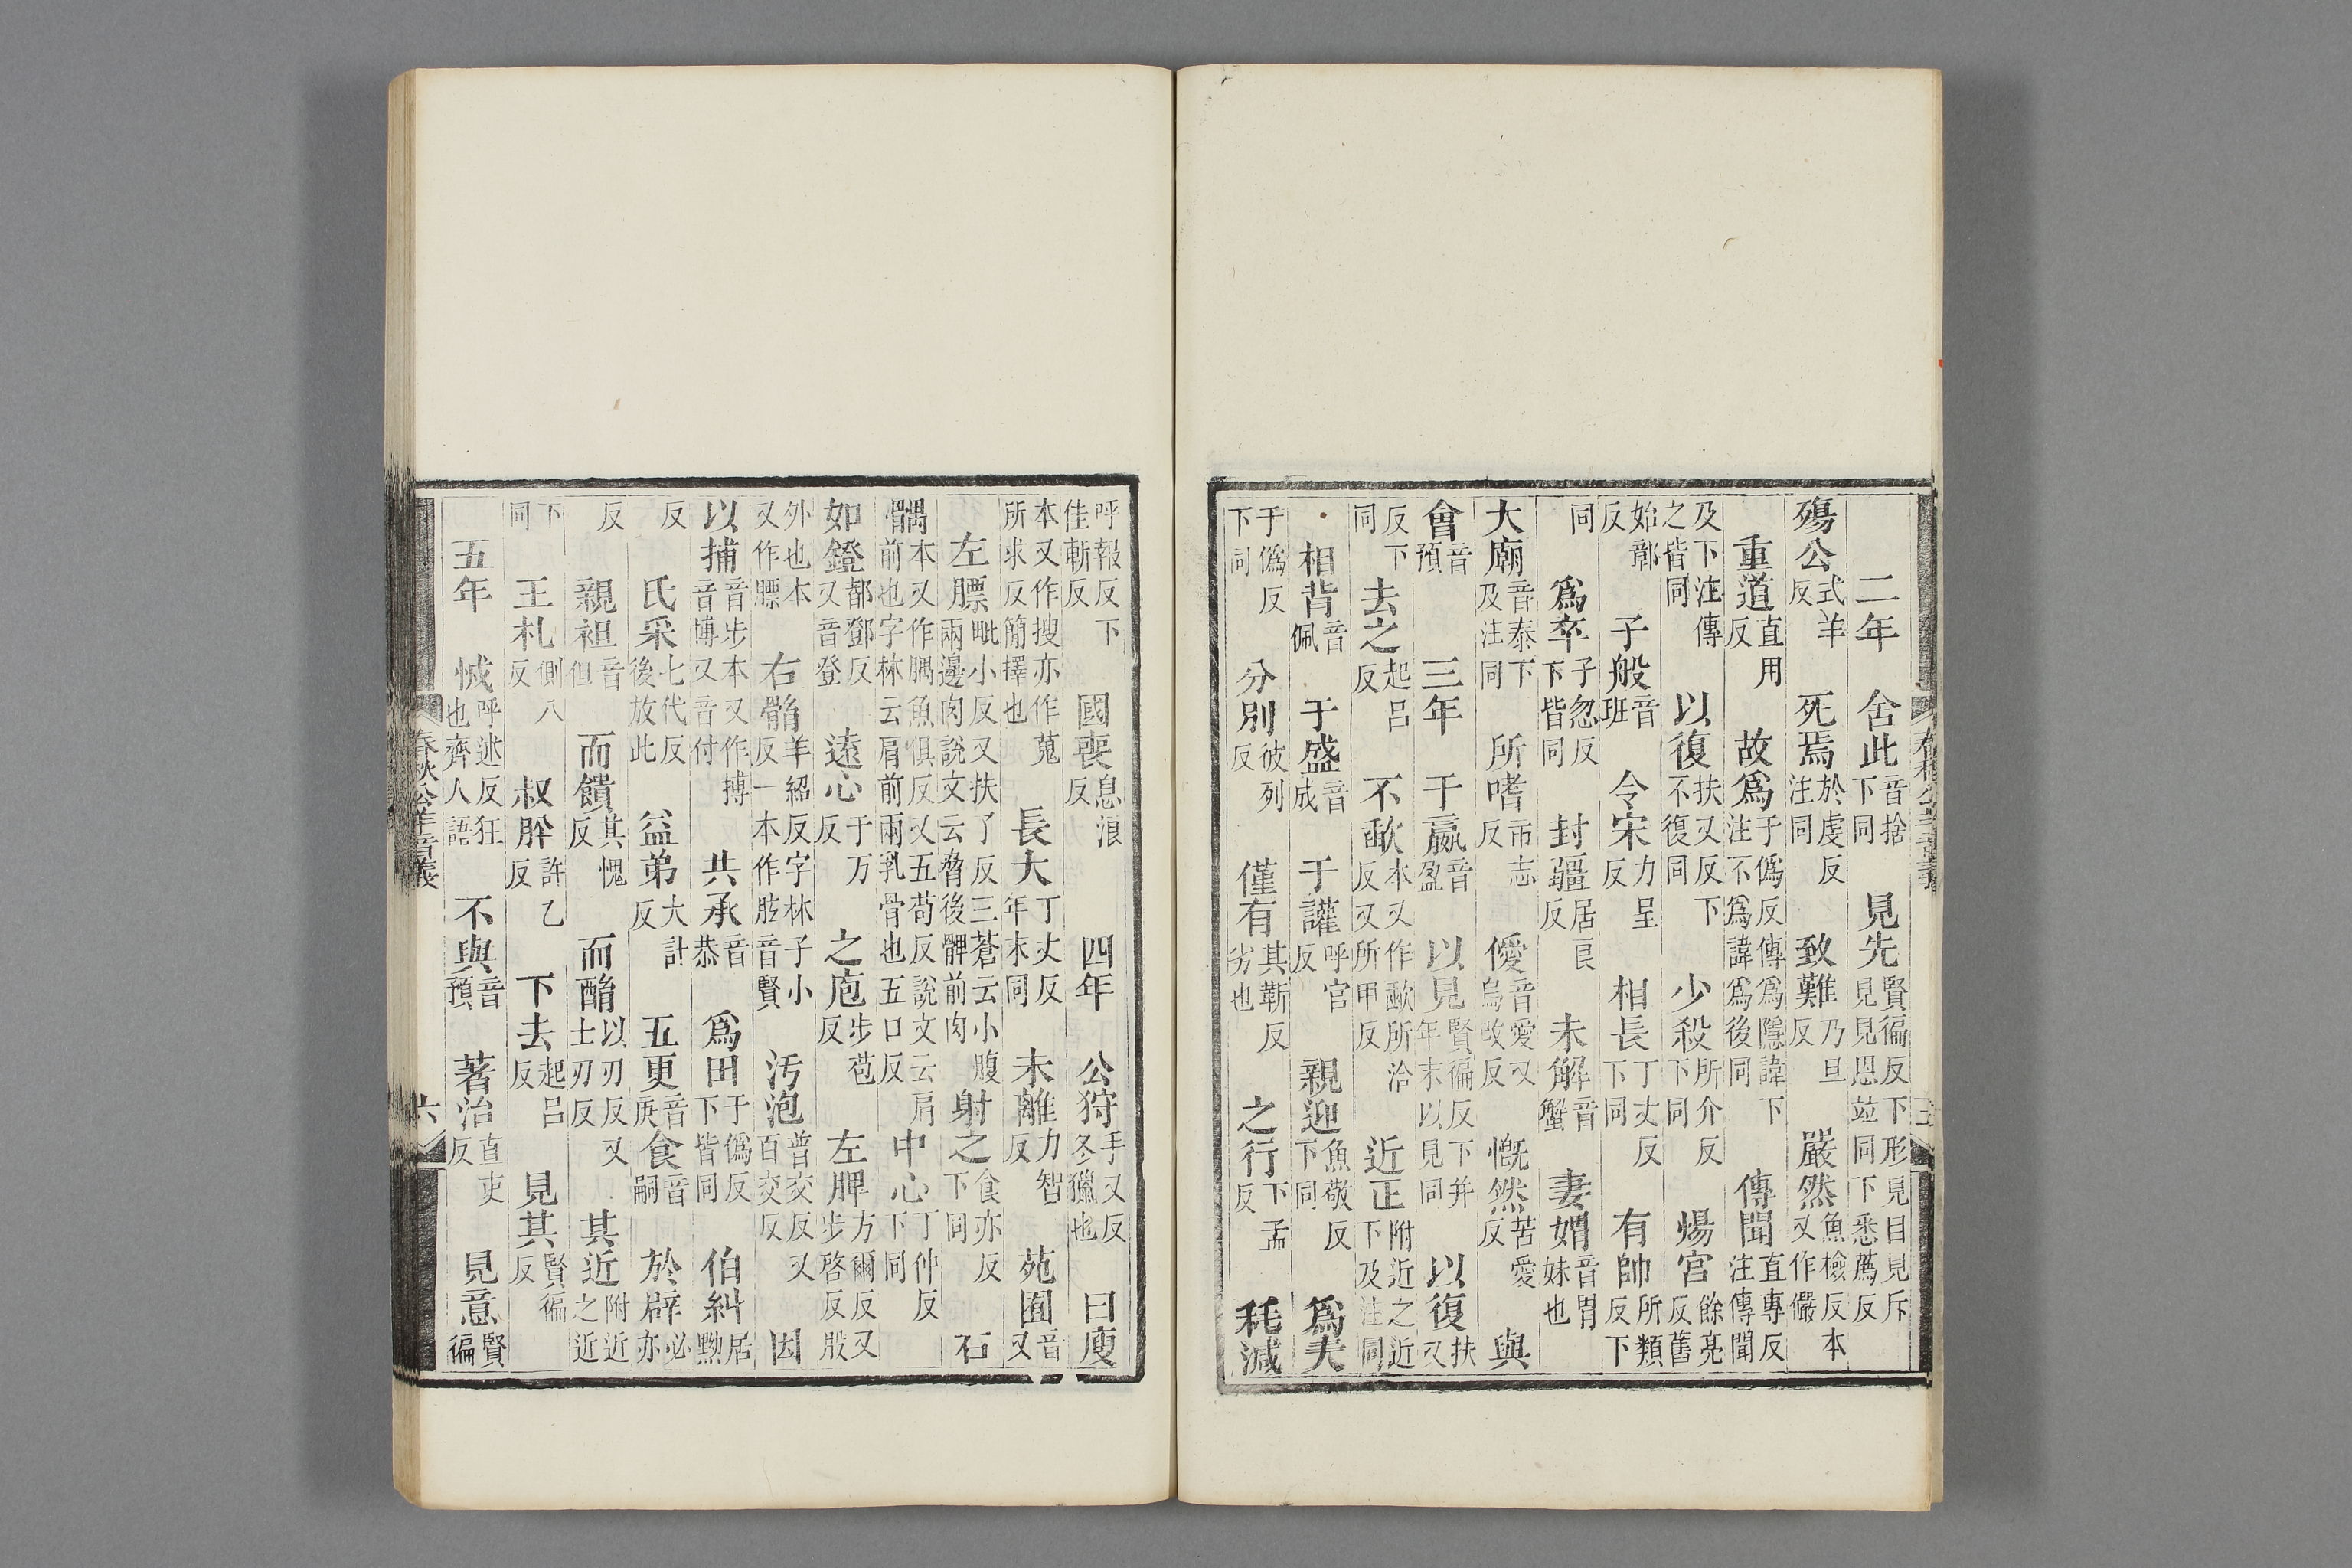 二年 舍此音捨下同 見先賢徧反下形見目見斥見見恩竝同下悉薦反
殤公式羊反 死焉於虔反注同 致難乃旦反 嚴然魚檢反本又作儼
重道直用反 故爲于僞反傳爲隱諱下注不爲諱爲後同 傳聞直專反注傳聞
及下注傳之皆同 以復扶又反下不復同 少殺所介反下同 煬宮餘亮反舊
始鄣反 子般音班 令宋力呈反 相長丁丈反下同 有帥所類反下
同 爲卒子忽反下皆同 封疆居良反 未解音蟹 妻媦音胃妹也
大廟音泰下及注同 所嗜市志反 僾音愛又烏改反 慨然苦愛反 與
會音預 三年 于嬴音盈 以見賢徧反下并年末以見同 以復扶又
反下同 去之起呂反 不歃本又作歃所洽反又所甲反 近正附近之近下及注同
相背音佩 于盛音成 于讙呼官反 親迎魚敬反下同 爲夫
于僞反下同 分別彼列反 僅有其靳反劣也 之行下孟反 秏減
呼報反下佳斬反 國喪息浪反 四年 公狩手又反冬獵也 曰廋
本又作搜亦作蒐所求反簡擇也 長大丁丈反年末同 未離力智反 苑囿音又
左膘毗小反又扶了反三蒼云小腹兩邊肉說文云脅後髀前肉 射之食亦反下同 石
髃本又作腢魚俱反又五苟反說文云肩前也字林云肩前兩乳骨也五口反 中心丁仲反下同
如鐙都鄧反又音登 遠心于万反 之庖步苞反 左脾方爾反又步啓反股
外也本又作膘 右䯚羊紹反字林子小反一本作肢音賢 汚泡普交反又百交反 因
以捕音步本又作搏音博又音付 共承音恭 爲田于僞反下皆同 伯糾居黝
反 氏采七代反後放此 益弟大計反 五更音庚 食音嗣 於辟必亦
反 親袒音但 而饋其愧反 而酳以刃反又士刃反 其近附近之近
下同 王札側八反 叔肸許乙反 下去起呂反 見其賢徧反
五年 怴呼述反狂也齊人語 不與音預 著治直吏反 見意賢徧
春秋公羊音義 六